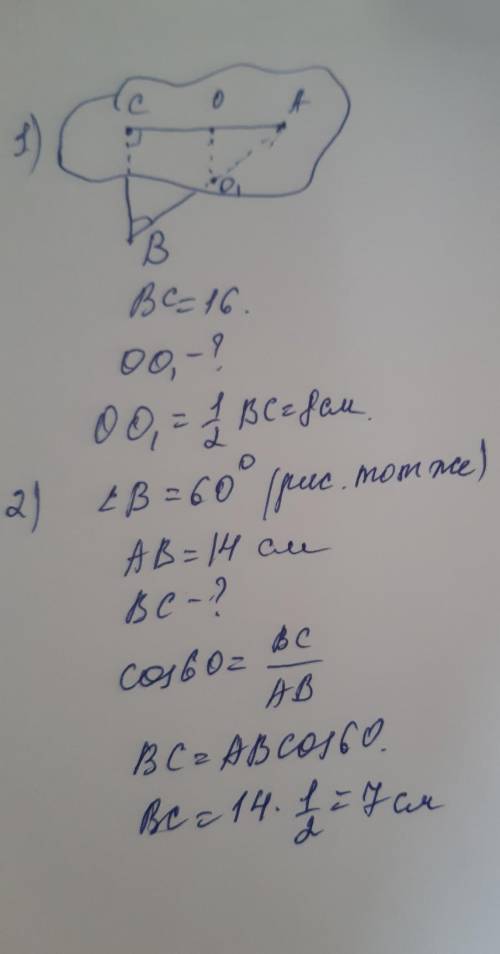 1)
C O A
O₁
B
BC=16.
OO₁-?
OO₁ = 1/2 BC=8см.
2) ∠B=60° (рис. тот же)
AB=14 см
BC-?
cos60= BC/AB
BC=ABcos60.
BC=14·1/2=7см